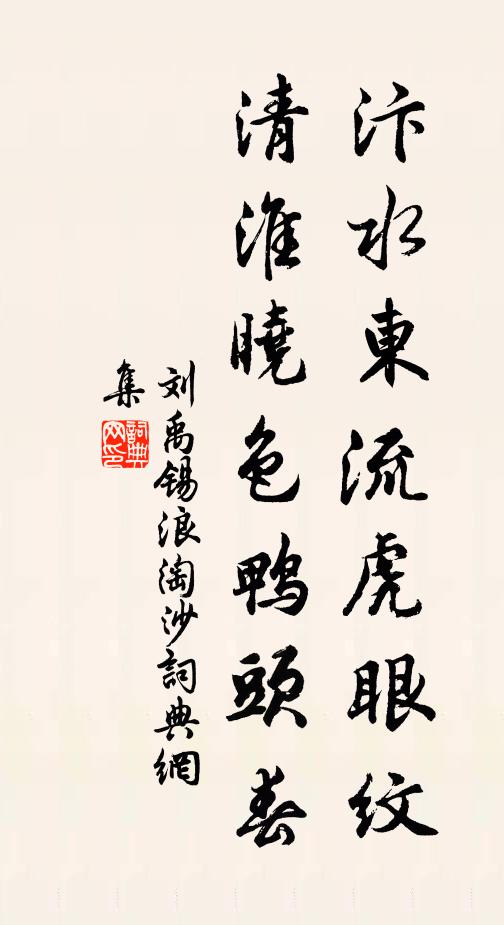 汴水東流虎眼紋
清淮曉色鴨頭春
刘禹锡浪淘沙詞典網
集
詞典网印